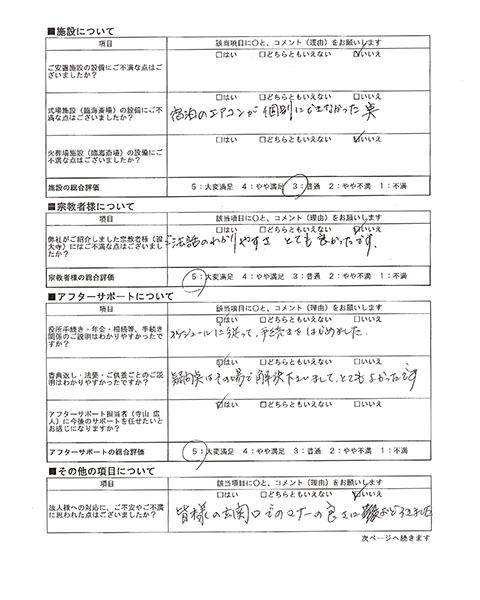 ■施設について
項目 該当項目に○と、コメント(理由)をお願いします
□はい □どちらともいえない ☑いいえ
ご安置施設の設備にご不満な点はご
ざいましたか?
□はい □どちらともいえない □いいえ
式場施設(臨海斎場)の設備にご不
満な点はございましたか?
宿泊のエアコンが個別にできなかった点
□はい □どちらともいえない ☑いいえ
火葬場施設(臨海斎場)の設備にご
不満な点はございましたか?
施設の総合評価 5:大変満足 4:やや満足 3:普通 2:やや不満 1:不満
■宗教者様について
項目 該当項目に○と、コメント(理由)をお願いします
□はい □どちらともいえない ☑いいえ
弊社がご紹介しました宗教者様(
大寺)にはご不満な点はございまし
たか?
法話のわかりやすさ とても良かったです。
宗教者様の総合評価 5:大変満足 4:やや満足 3:普通 2:やや不満 1:不満
■アフターサポートについて
項目 該当項目に○と、コメント(理由)をお願いします
☑はい □どちらともいえない □いいえ
役所手続き・年金・相続等、手続き
関係のご説明はわかりやすかったで
すか?
スケジュールに従って、手続きをはじめました.
☑はい □どちらともいえない □いいえ
香典返し・法要・ご供養ごとのご説
明はわかりやすかったですか?
疑問点はその場で解決下さいまして、とてもよかったです
☑はい □どちらともいえない □いいえ
アフターサポート担当者(寺山 広
人)に今後のサポートを任せたいと
お感じになりますか?
アフターサポートの総合評価 5:大変満足 4:やや満足 3:普通 2:やや不満 1:不満
■その他の項目について
項目 該当項目に○と、コメント(理由)をお願いします
□はい □どちらともいえない ☑いいえ
故人様への対応に、ご不安やご不満
に思われた点はございましたか?
皆様の玄関口でのマナーの良さにおどろきました
次ページへ続きます